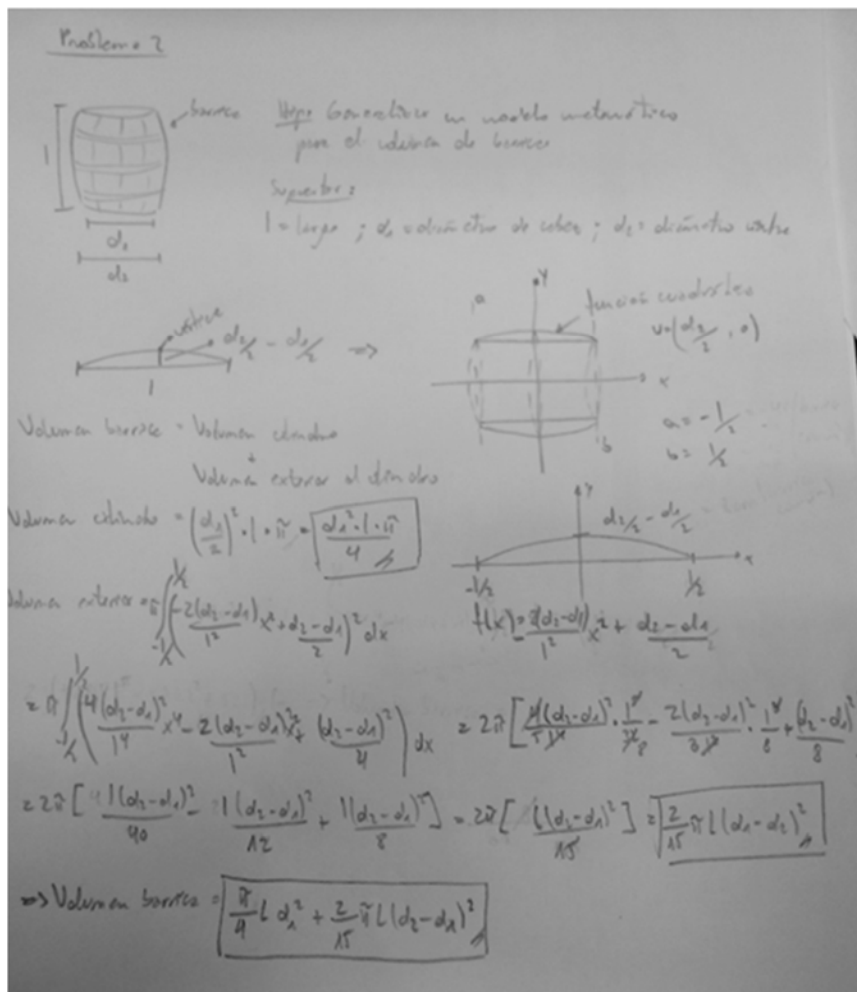 Problema 2
barrica
l
d₁
d₂
Hipo Generalizar un modelo matemático
para el volumen de barrica
Supuestos:
l = largo ; d₁ = diámetro de cabeza ; d₂ = diámetro
vértice
d₂/2 - d₁/2 ⇒
l
y
a
función cuadrática
v = (d₂/2, 0)
x
a = -l/2
b = l/2
b
Volumen barrica = Volumen cilindro
+
Volumen exterior al cilindro
Volumen cilindro = (d₁/2)² · l · π = d₁² · l · π / 4
y
d₂/2 - d₁/2
x
-l/2
l/2
Volumen exterior = π ∫_{-l/2}^{l/2} (-2(d₂-d₁)/l² x² + d₂-d₁/2)² dx
f(x) = -2(d₂-d₁)/l² x² + d₂-d₁/2
= π ∫_{-l/2}^{l/2} (4(d₂-d₁)²/l⁴ x⁴ - 2(d₂-d₁)²x²/l² + (d₂-d₁)²/4) dx = 2π [4(d₂-d₁)²/5l⁴ · l⁵/32 - 2(d₂-d₁)²/3l² · l³/8 + (d₂-d₁)²/8
= 2π [4 l(d₂-d₁)²/40 - l(d₂-d₁)²/12 + l(d₂-d₁)²/8] = 2π [l(d₂-d₁)²/15] = 2/15 π l (d₁-d₂)²
⇒ Volumen barrica = π/4 l d₁² + 2/15 π l (d₂-d₁)²